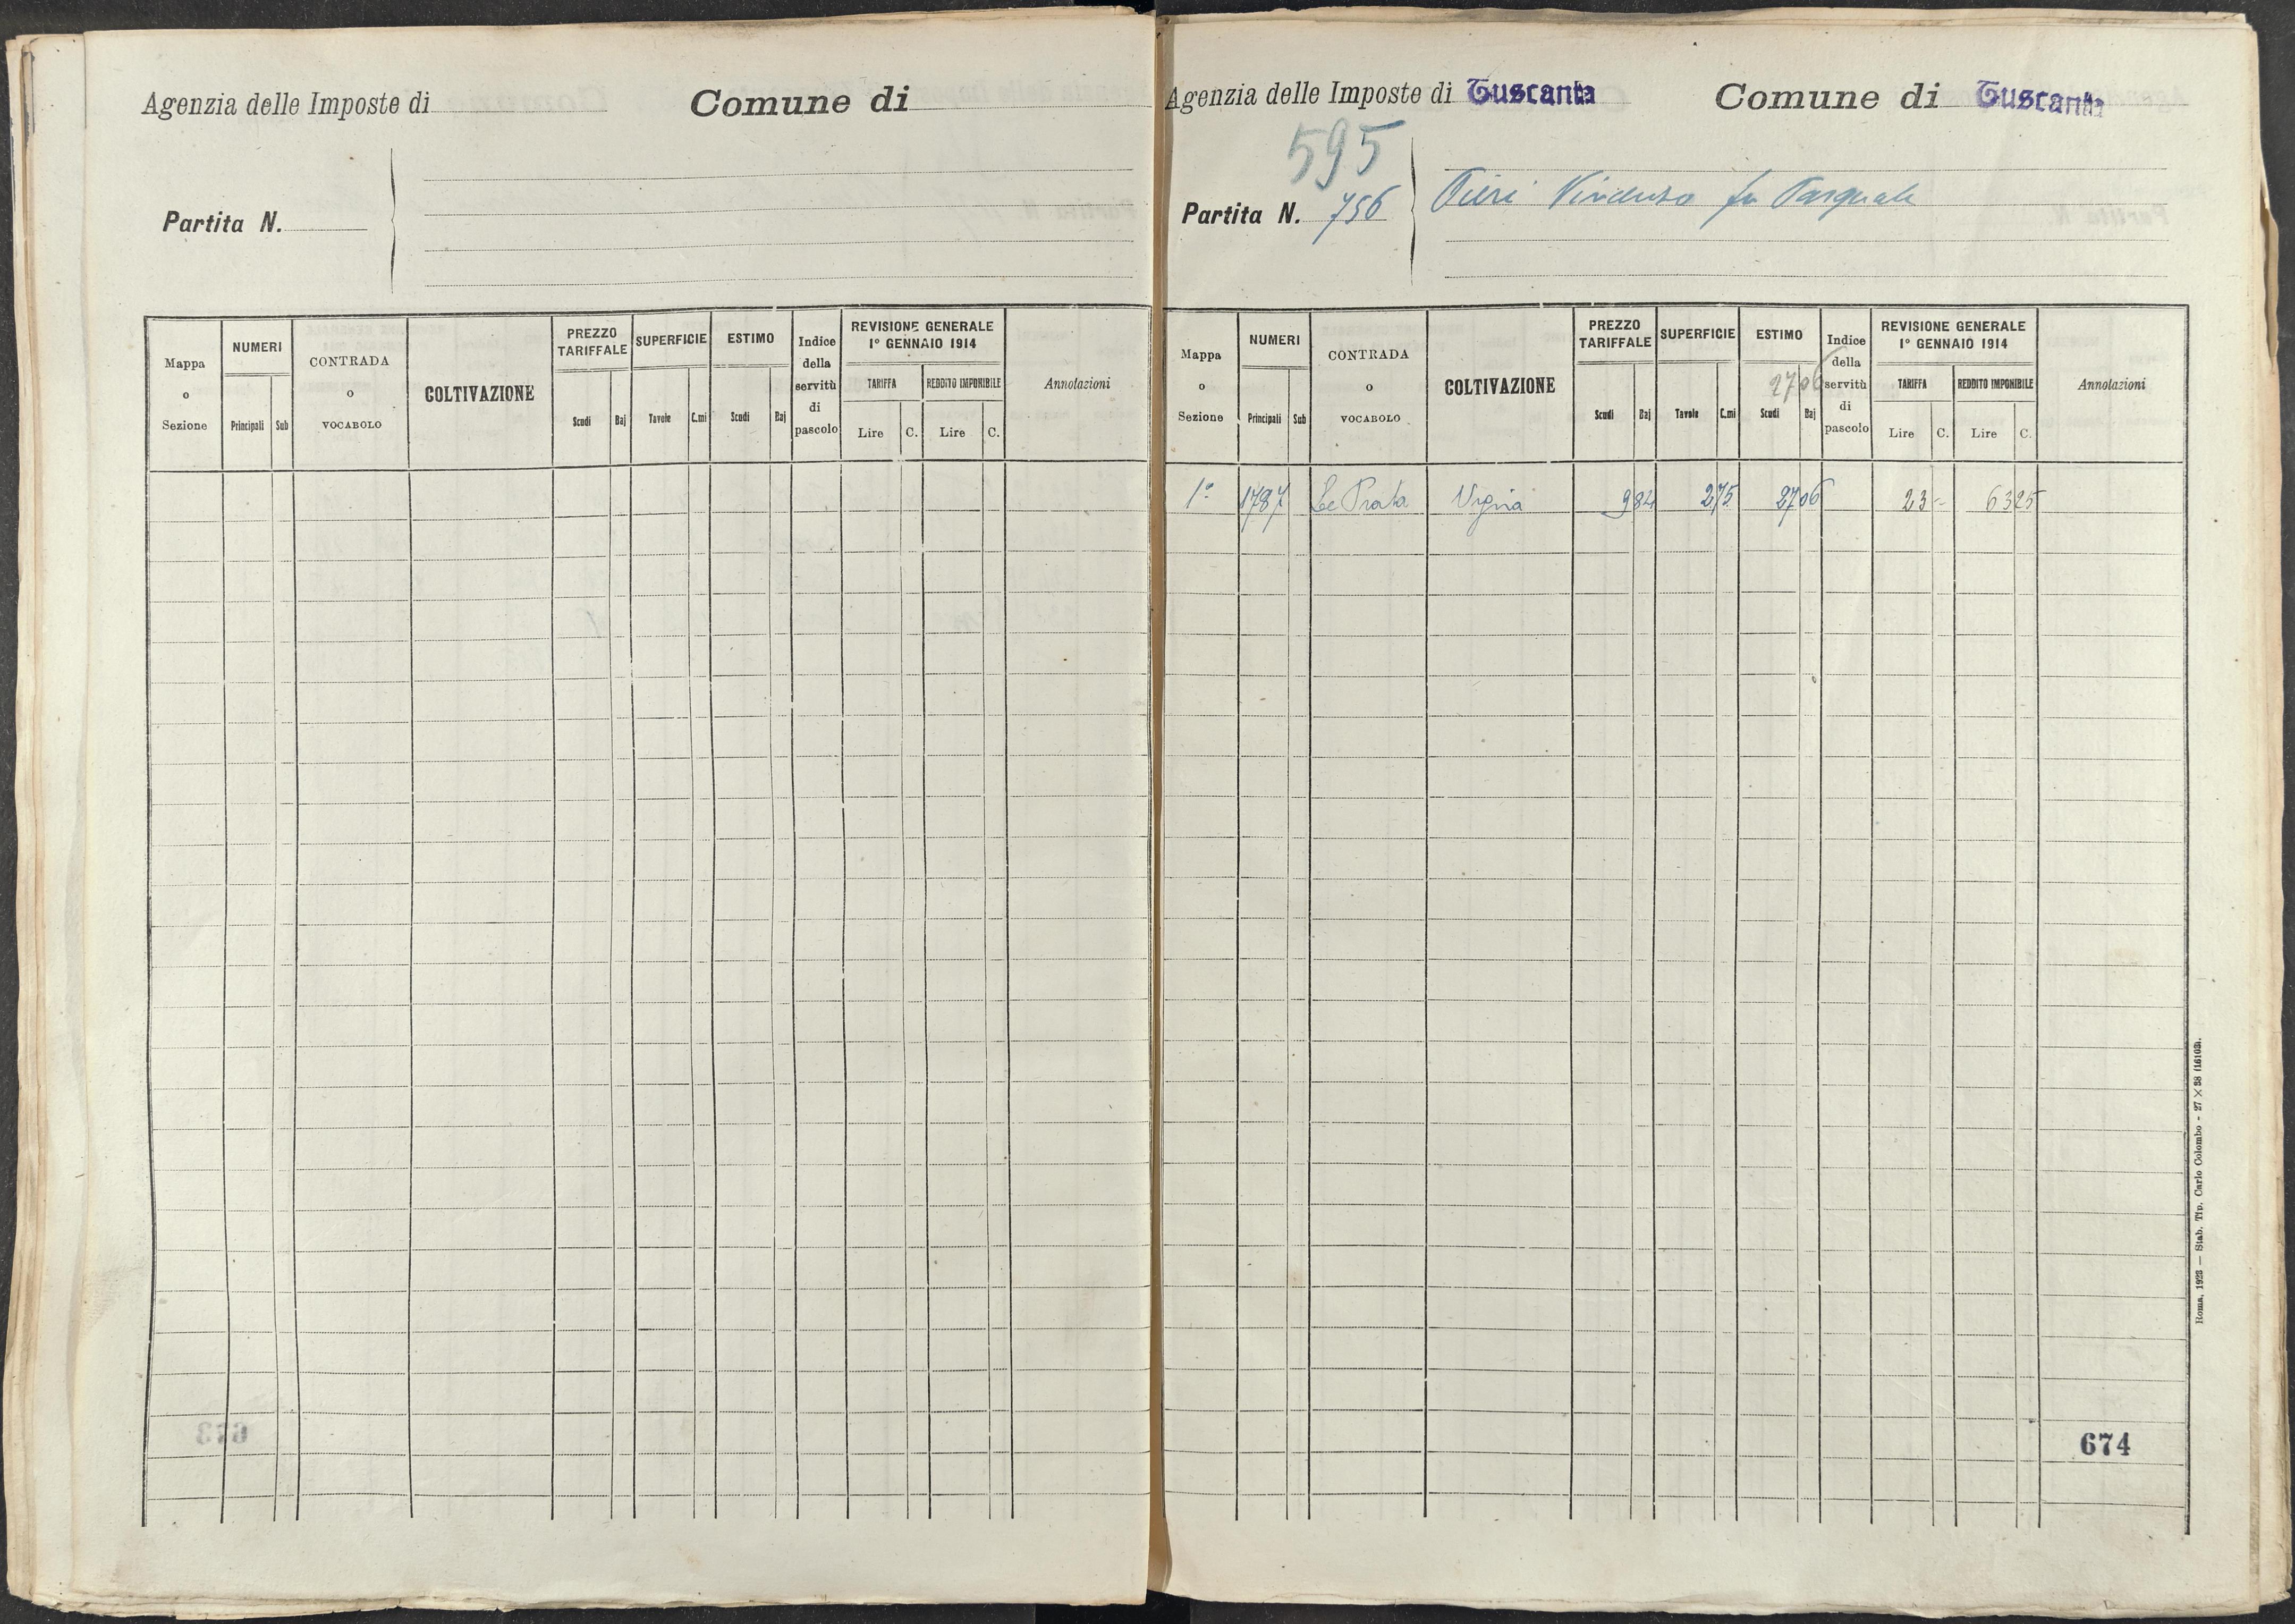 Agenzia delle Imposte di
Comune di
Partita N.
Mappa o Sezione
NUMERI
Principali
Sub
CONTRADA o VOCABOLO
COLTIVAZIONE
PREZZO TARIFFALE
Scudi
Baj
SUPERFICIE
Tavole
C.mi
ESTIMO
Scudi
Baj
Indice della servitù di pascolo
REVISIONE GENERALE
1º GENNAIO 1914
TARIFFA
Lire
C.
REDDITO IMPONIBILE
Lire
C.
Annotazioni
673
Agenzia delle Imposte di Tuscania
Comune di Tuscania
595
Partita N. 756
Pieri Vincenzo fu Pasquale
Mappa o Sezione
NUMERI
Principali
Sub
CONTRADA o VOCABOLO
COLTIVAZIONE
PREZZO TARIFFALE
Scudi
Baj
SUPERFICIE
Tavole
C.mi
ESTIMO
2706
Scudi
Baj
Indice della servitù di pascolo
REVISIONE GENERALE
1º GENNAIO 1914
TARIFFA
Lire
C.
REDDITO IMPONIBILE
Lire
C.
Annotazioni
1º 1787 Le Prata Vigna 984 275 2706 23 - 6325
Roma, 1923 — Stab. Tip. Carlo Colombo - 27 × 38 (16103).
674